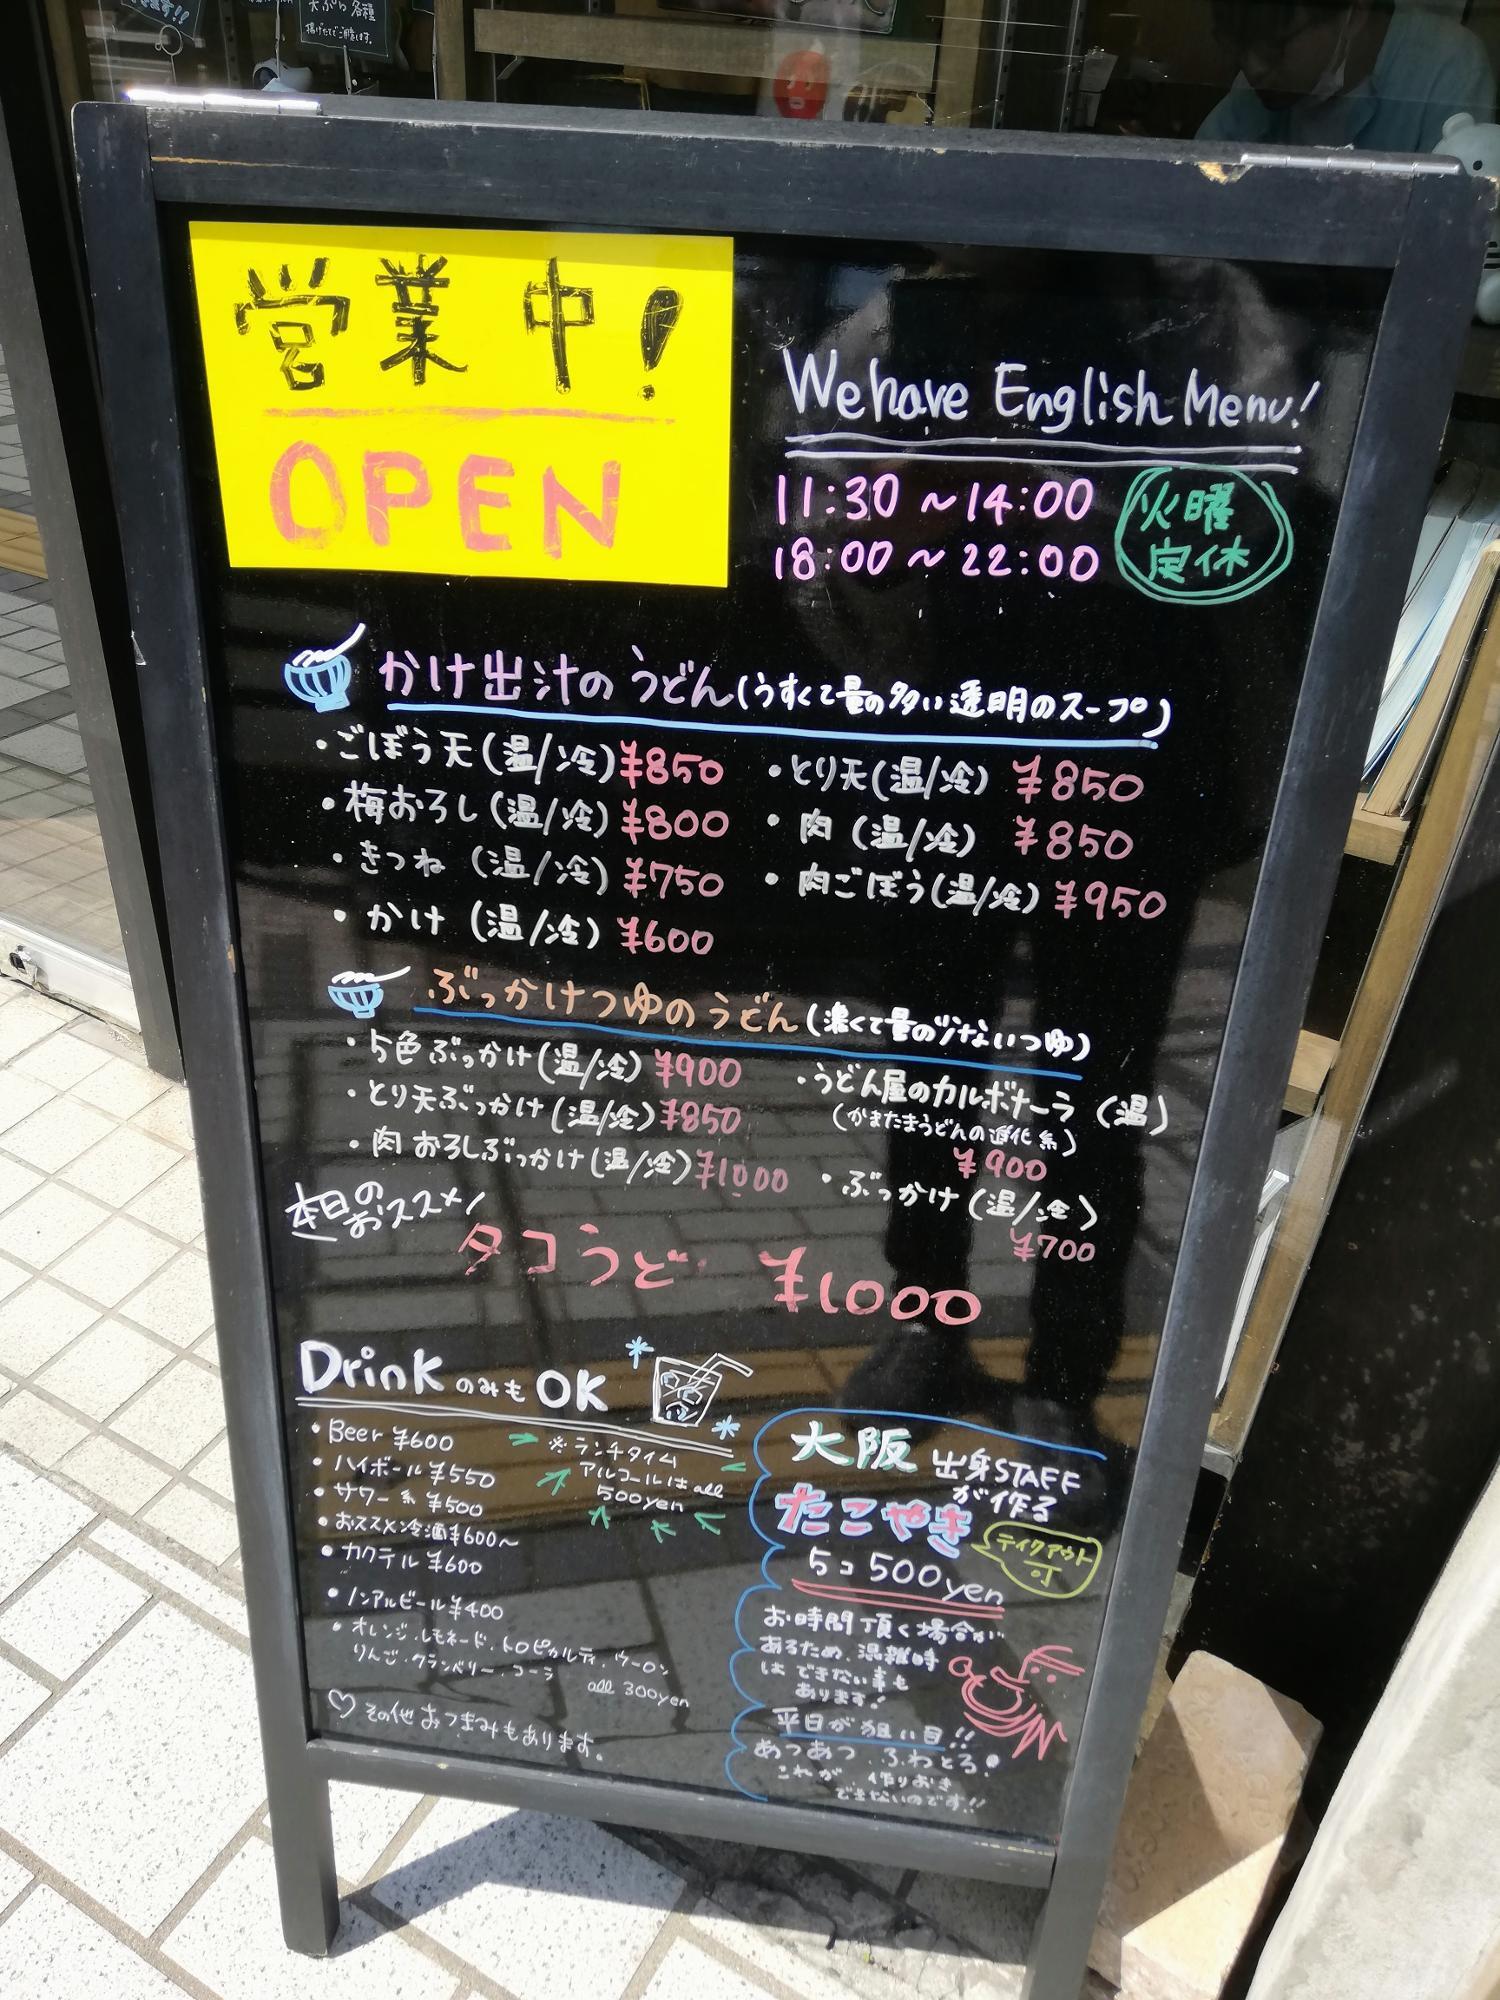 天ぷら各種
揚げたてご用意します。
営業中!
OPEN
We have English Menu!
11:30 ~ 14:00
18:00 ~ 22:00
火曜
定休
かけ出汁のうどん(うすくて量の多い透明のスープ)
・ごぼう天(温/冷)¥850
・梅おろし(温/冷)¥800
・きつね (温/冷)¥750
・かけ (温/冷) ¥600
・とり天(温/冷) ¥850
・肉 (温/冷) ¥850
・肉ごぼう(温/冷)¥950
ぶっかけつゆのうどん(濃くて量の少ないつゆ)
・5色ぶっかけ(温/冷)¥900
・とり天ぶっかけ(温/冷)¥850
・肉おろしぶっかけ(温/冷)¥1000
・うどん屋のカルボナーラ (温)
(かまたまうどんの進化系)
¥900
・ぶっかけ (温/冷)
¥700
本日の
おススメ!
タコうど ¥1000
DrinkのみもOK
・Beer ¥600
・ハイボール ¥550
・サワー系 ¥500
・おススメ冷酒¥600~
・カクテル ¥600
・ノンアルビール¥400
・オレンジ・レモネード・トロピカルティ・ウーロン
りんご・クランベリー・コーラ
all 300yen
♡その他おつまみもあります。
※ランチタイム
アルコールはall
500yen
大阪出身STAFF
が作る
たこやき
テイクアウト
可
5コ 500yen
お時間頂く場合が
あるため、混雑時
は できない事も
あります!
平日が狙い目!!
あつあつ、ふわとろ!
これが、作りおき
できないのです!!